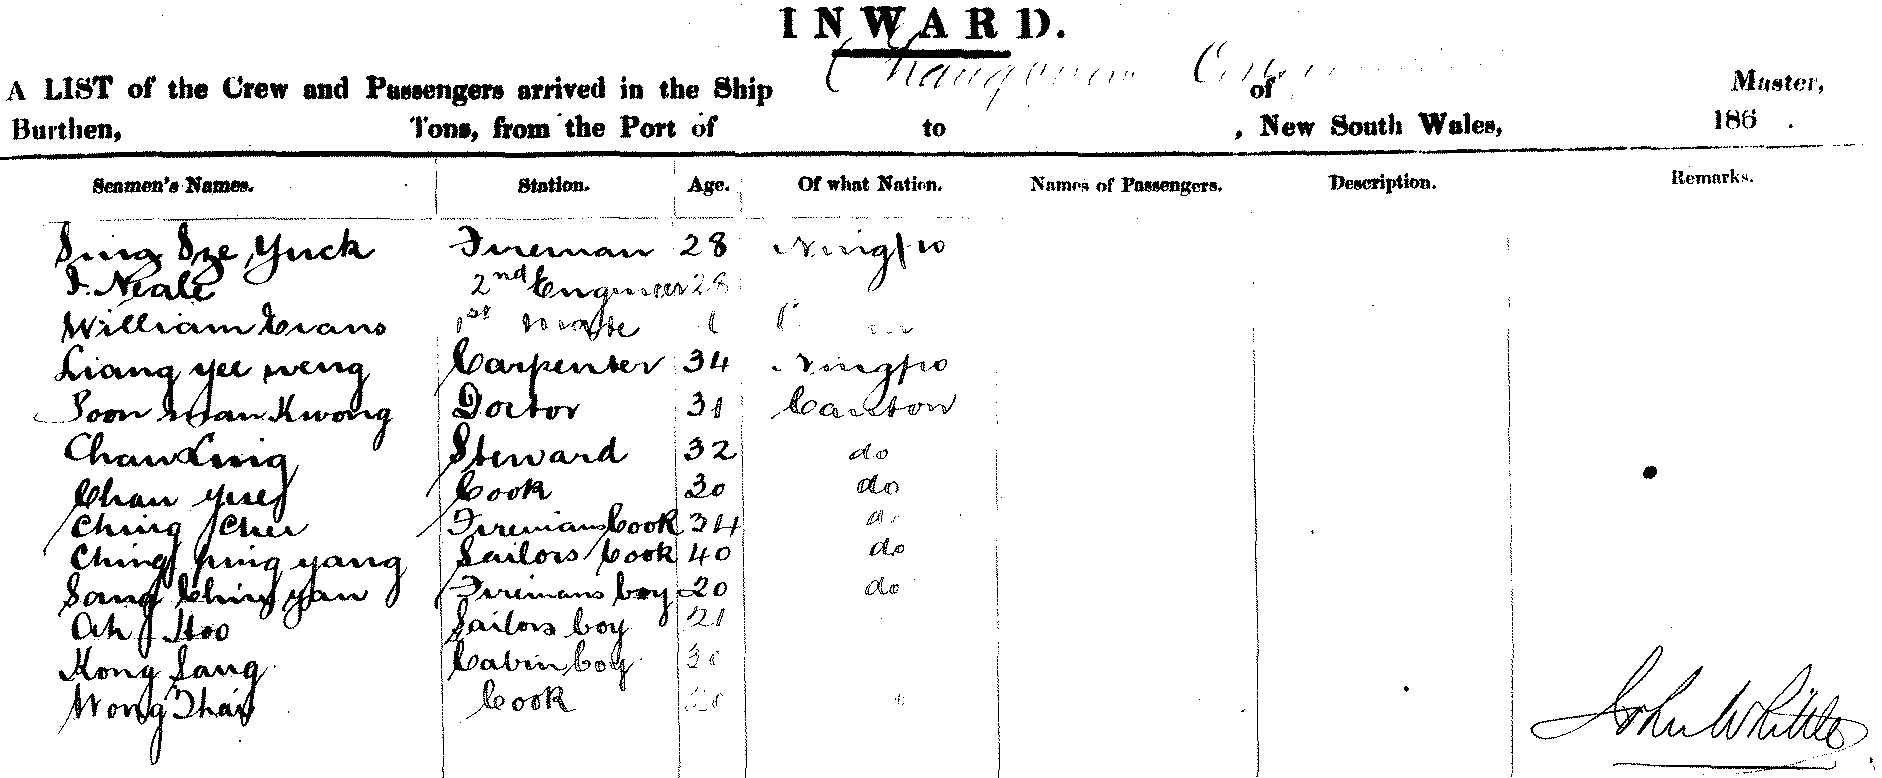 INWARD.
A LIST of the Crew and Passengers arrived in the Ship of Master,
Burthen, Tons, from the Port of to , New South Wales, 186 .
Seamen's Names. Station. Age. Of what Nation. Names of Passengers. Description. Remarks.
Sing Sze Yuck Fireman 28 Ningpo
J. Neale 2nd Engineer 28
William Evans 1st Mate
Liang yee weng Carpenter 34 Ningpo
Soon man Kwong Doctor 31 Canton
Chan Ling Steward 32 do
Chan yuey Cook 30 do
Ching Chei Firemans Cook 34 do
Ching hing yang Sailors Cook 40 do
Song Ching yan Firemans boy 20 do
Ah Hoo Sailors boy 21
Kong Sang Cabin boy 30
Wong Thai Cook
John Whittle